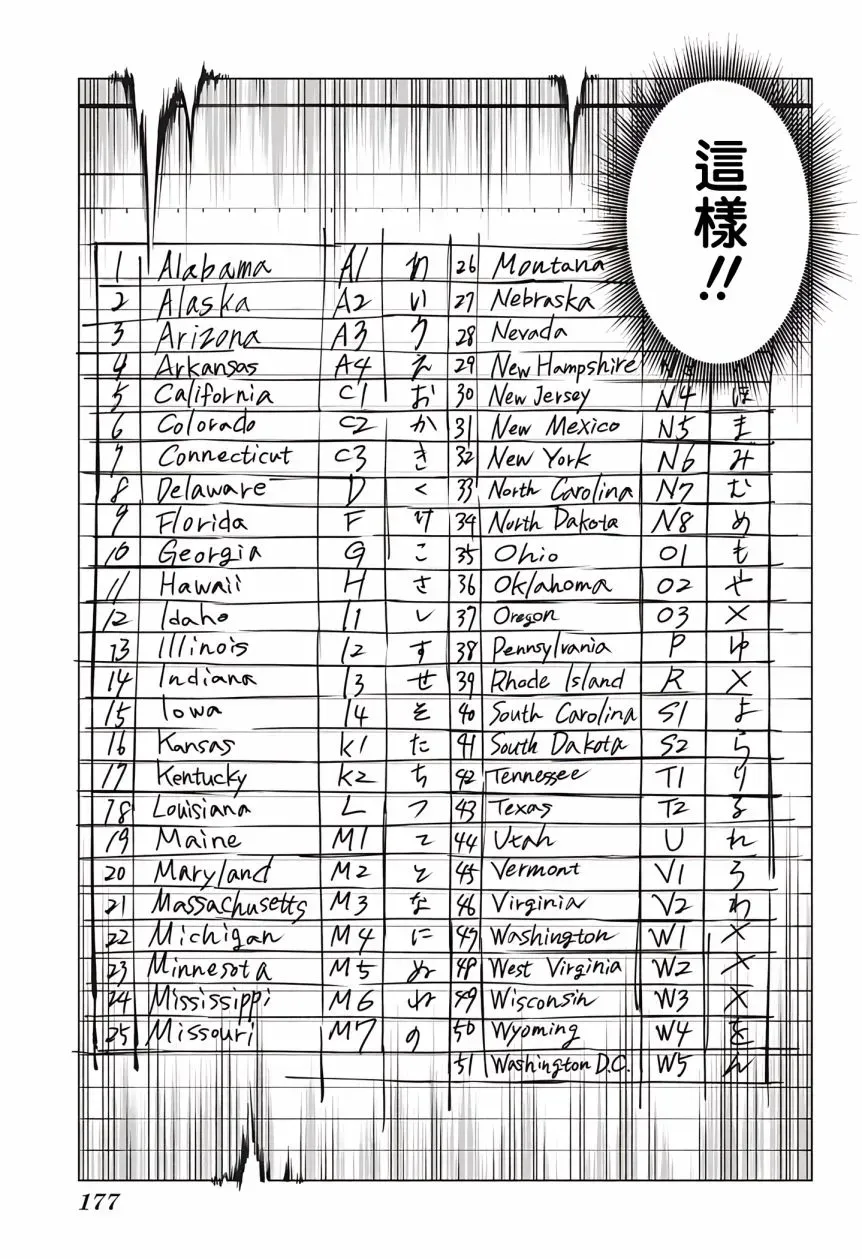 這樣!!
1 Alabama A1 わ 26 Montana
2 Alaska A2 い 27 Nebraska
3 Arizona A3 う 28 Nevada
4 Arkansas A4 え 29 New Hampshire
5 California C1 お 30 New Jersey N4 ほ
6 Colorado C2 か 31 New Mexico N5 ま
7 Connecticut C3 き 32 New York N6 み
8 Delaware D く 33 North Carolina N7 む
9 Florida F け 34 North Dakota N8 め
10 Georgia G こ 35 Ohio O1 も
11 Hawaii H さ 36 Oklahoma O2 や
12 Idaho I1 し 37 Oregon O3 X
13 Illinois I2 す 38 Pennsylvania P ゆ
14 Indiana I3 せ 39 Rhode Island R X
15 Iowa I4 そ 40 South Carolina S1 よ
16 Kansas K1 た 41 South Dakota S2 ら
17 Kentucky K2 ち 42 Tennessee T1 り
18 Louisiana L つ 43 Texas T2 る
19 Maine M1 て 44 Utah U れ
20 Maryland M2 と 45 Vermont V1 ろ
21 Massachusetts M3 な 46 Virginia V2 わ
22 Michigan M4 に 47 Washington W1 X
23 Minnesota M5 ぬ 48 West Virginia W2 X
24 Mississippi M6 ね 49 Wisconsin W3 X
25 Missouri M7 の 50 Wyoming W4 を
51 Washington D.C. W5 ん
177